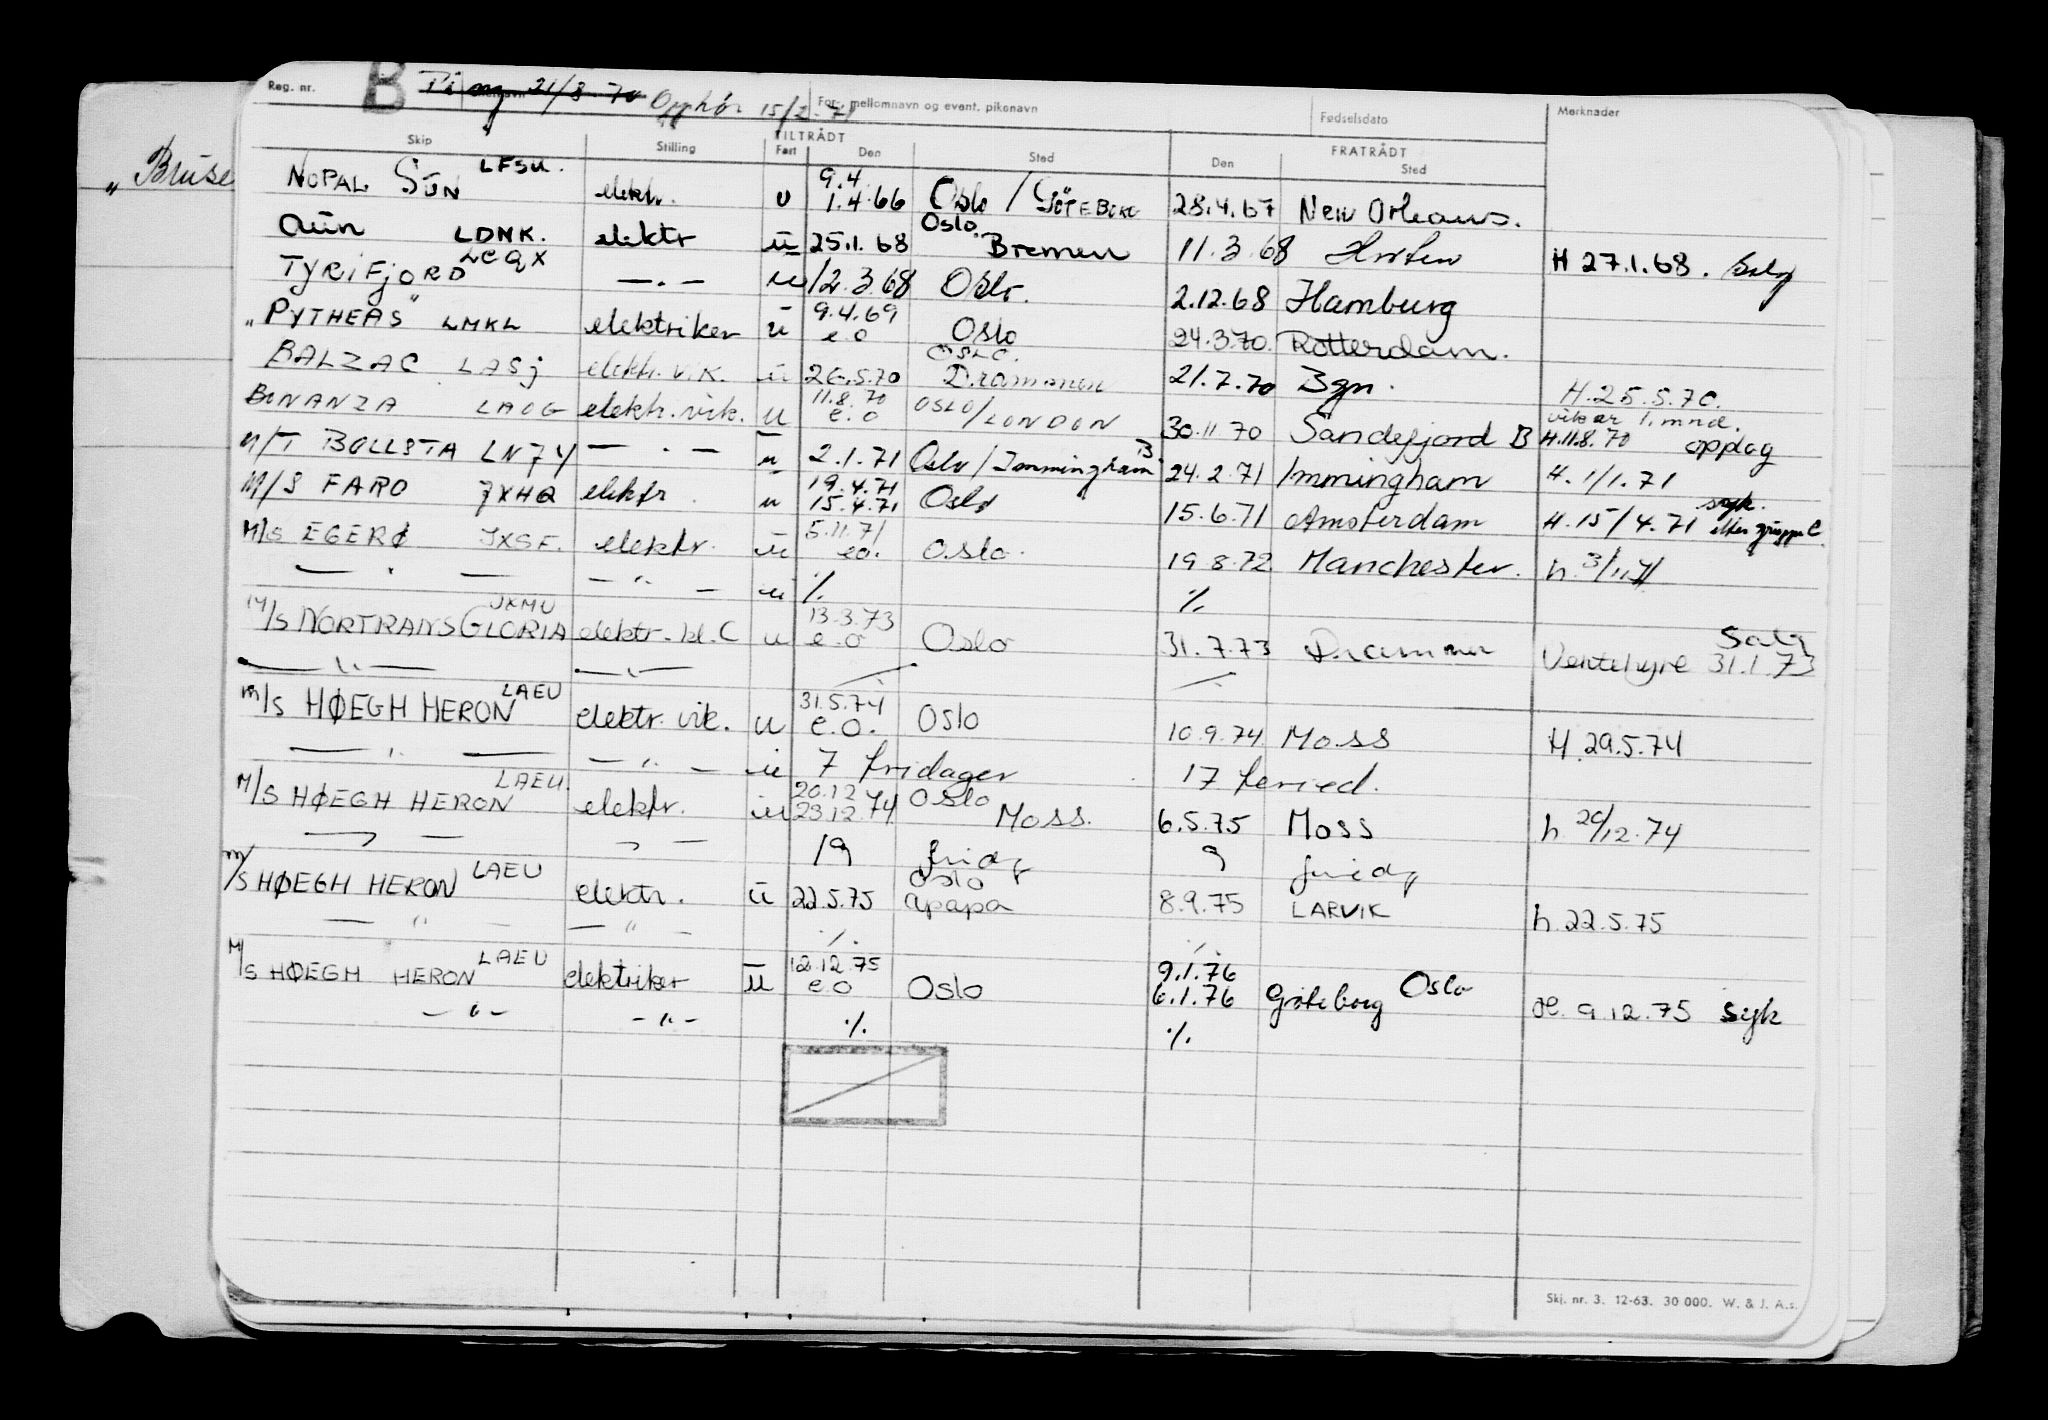 Reg. nr. B 21/8-70 Opphør 15/2-71 For- mellomnavn og event. pikenavn Fødselsdato Merknader
Skip Stilling Fart TILTRÅDT Den Sted FRATRÅDT Den Sted
"Bruse
NOPAL SUN LFSU. elektr. u 9.4 1.4.66 Oslo / GÖTEBORG 28.4.67 New Orleans.
Aun LDNK. elektr u 25.1.68 Oslo Bremen 11.3.68 Horten H 27.1.68. Salg
TYRIFJORD LCQX — . — u 12.3.68 Oslo. 2.12.68 Hamburg
"PYTHEAS" LMKL elektriker u 9.4.69 e.o Oslo 24.3.70. Rotterdam.
BALZAC LASJ elektr. vik. u 26.5.70 OSLO. Drammen 21.7.70 Bgn. H. 25.5.70. vikar 1. mnd.
BONANZA LAOG elektr. vik. u 11.8.70 e.o OSLO/LONDON 30.11 70 Sandefjord B H. 11.8.70 opplag
M/T BOLLSTA LN7Y — . — u 2.1.71 Oslo / Immingham B 24.2.71 Immingham H. 1/1.71
M/S FARO JXHQ elektr. u 19.4.71 15.4.71 Oslo 15.6.71 Amsterdam H. 15/4.71 syk. etter gruppe C.
M/S EGERØ JXSF. elektr. u 5.11.71 e.o. Oslo. 19 8.72 Manchester. h. 3/11.71
— " — — " — u ./. ./.
M/S NORTRANS GLORIA JXMU elektr. kl. C u 13.3.73 e.o Oslo 31.7.73 Drammen Ventehyre 31.1.73 Salg
— " — — " — ./. ./.
M/S HØEGH HERON LAEU elektr. vik. u 31.5.74 e.o. Oslo 10.9.74 Moss H. 29.5.74
— " — — " — u 7 fridager 17 feried.
M/S HØEGH HERON LAEU. elektr. u 20.12 23.12.74 Oslo Moss. 6.5.75 Moss h. 20/12.74
— " — — " — 19 frid. 9 frid.
M/S HØEGH HERON LAEU elektr. u 22.5.75 Oslo Apapa 8.9.75 LARVIK h. 22.5.75
— " — — " — ./. ./.
M/S HØEGH HERON LAEU elektriker u 12.12.75 e.o Oslo 9.1.76 6.1.76 Göteborg Oslo H. 9.12.75 syk
— " — — " — ./. ./.
Skj. nr. 3. 12-63. 30 000. W. & J. A.s.